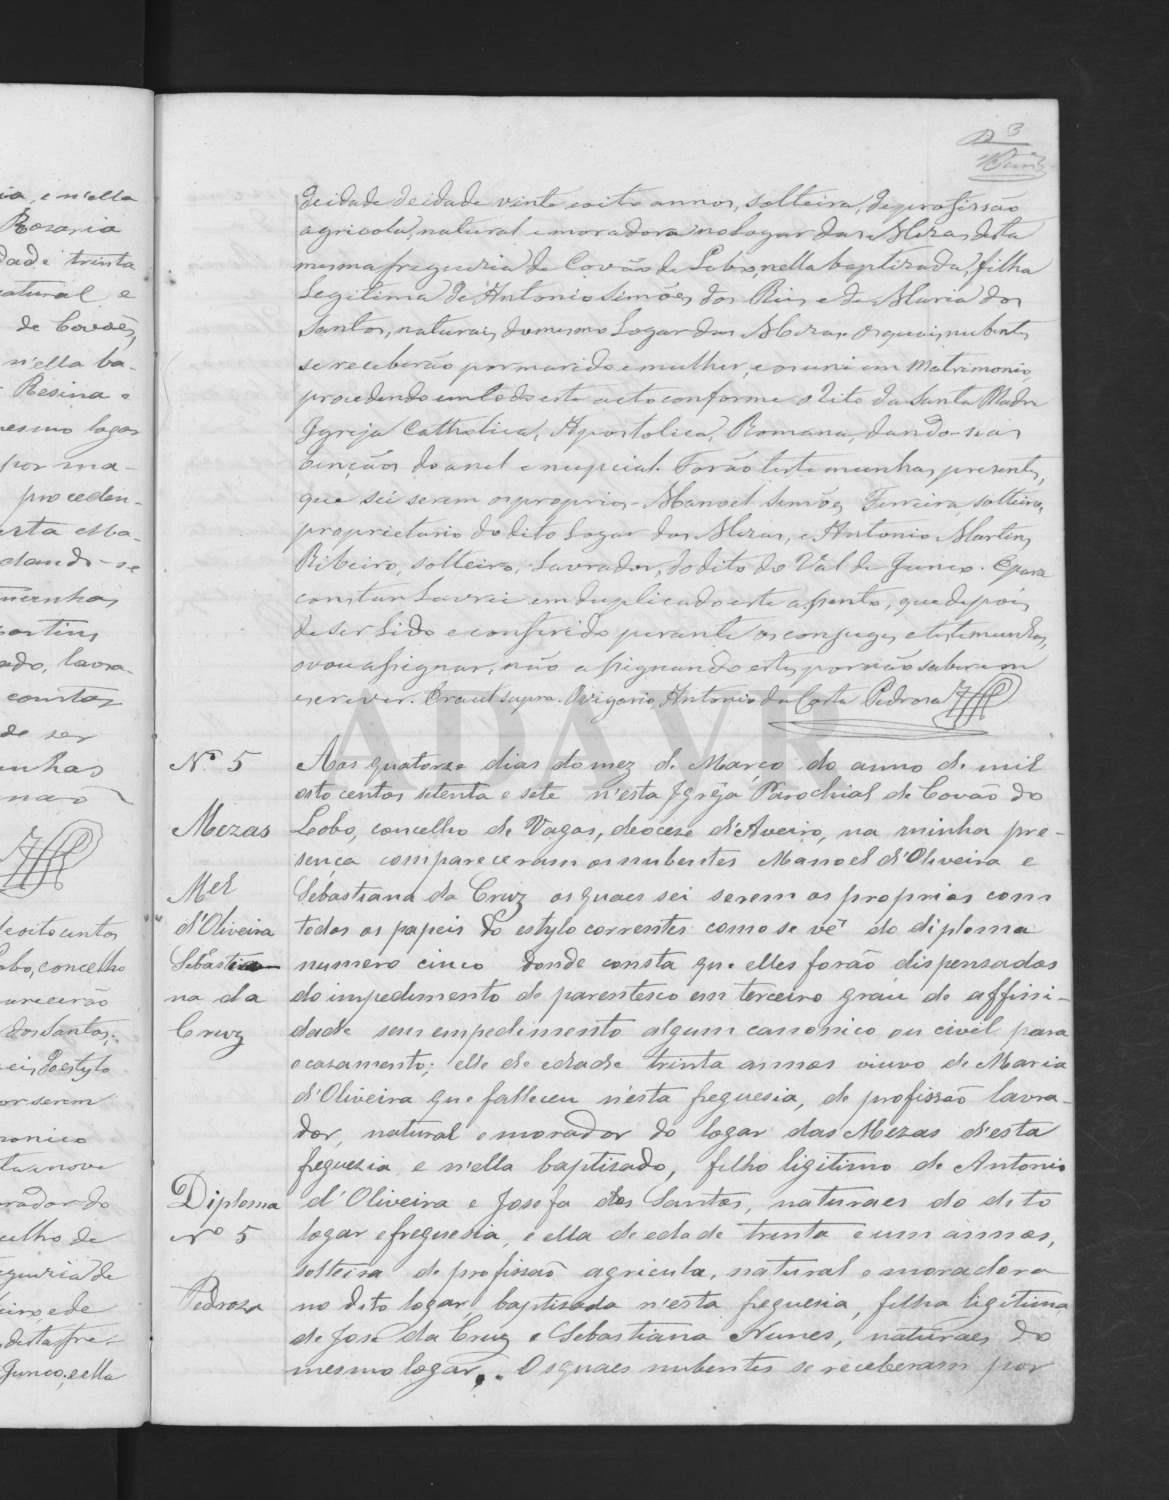 3
de idade de idade vinte e oito annos, solteira, de profissão
agricola, natural e moradora no Logar das Mezas desta
mesma freguezia de Covão do Lobo, nella baptizada, filha
Legitima de Antonio Simões dos Reis e de Maria dos
Santos, naturais do mesmo Logar das Mezas. Os quais nubentes
se receberão por marido e mulher, e os uni em Matrimonio,
procedendo em todo este acto conforme o Rito da Santa Madre
Igreja Catholica, Apostolica, Romana, dando-se as
bençãos do anel e nupcial. Forão testemunhas presentes,
que sei serem os proprios - Manoel Simões Ferreira, solteiro,
proprietario do dito Logar das Mezas, e Antonio Martins
Ribeiro, solteiro, Lavrador, do dito do Val de Junco. E para
constar Lavrei em duplicado este assento, que depois
de ser Lido e conferido perante os conjuges e testemunhas,
o vou assignar, não assignando estes por não saberem
escrever. Era ut supra. O vigario, Antonio da Costa Pedroza
Nº 5
Mezas
Mel
d'Oliveira
Sebastia
na da
Cruz
Diploma
nº 5
Pedroza
Aos quatorze dias do mez de Março do anno de mil
oito centos setenta e sete n'esta Igreja Parochial de Covão do
Lobo, concelho de Vagos, deocese d'Aveiro, na minha pre-
sença compareceram os nubentes Manoel d'Oliveira e
Sebastiana da Cruz os quaes sei serem os proprios com
todos os papeis do estylo correntes como se vê do diploma
numero cinco donde consta que elles forão dispensados
do impedimento de parentesco em terceiro grau de affini-
dade sem empedimento algum canonico ou civil para
o casamento; elle de edade trinta annos viuvo de Maria
d'Oliveira que falleceu n'esta freguesia, de profissão lavra-
dor, natural e morador do logar das Mezas d'esta
freguezia e n'ella baptisado, filho ligitimo de Antonio
d'Oliveira e Josefa dos Santos, naturaes do dito
logar e freguesia, e ella de edade trinta e um annos,
solteira de profissão agricula, natural e moradora
no dito logar, baptisada n'esta freguesia, filha ligitima
de José da Cruz e Sebastiana Nunes, naturaes do
mesmo logar. Os quaes nubentes se receberam por
ADAVR